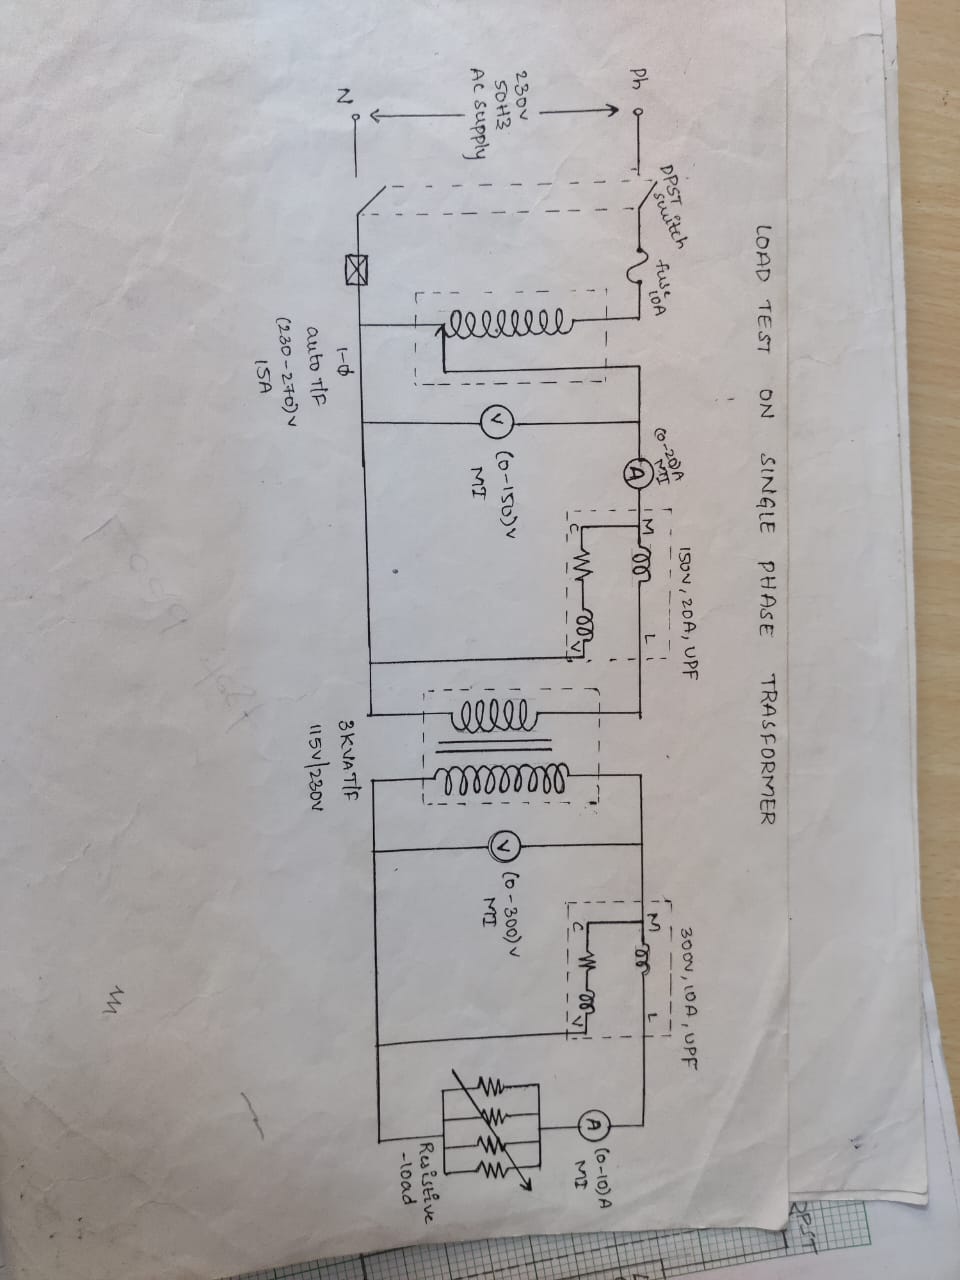 LOAD TEST ON SINGLE PHASE TRASFORMER
Ph
230V
50HZ
AC supply
N
DPST switch
fuse
10A
1-Φ
auto T/F
(230-270)V
15A
(0-150)V
MI
(0-20)A
MI
A
V
150V, 20A, UPF
M
L
C
V
3KVA T/F
115V/230V
V
(0-300)V
MI
300V, 10A, UPF
M
L
C
V
A
(0-10)A
MI
Resistive
-load
DPST